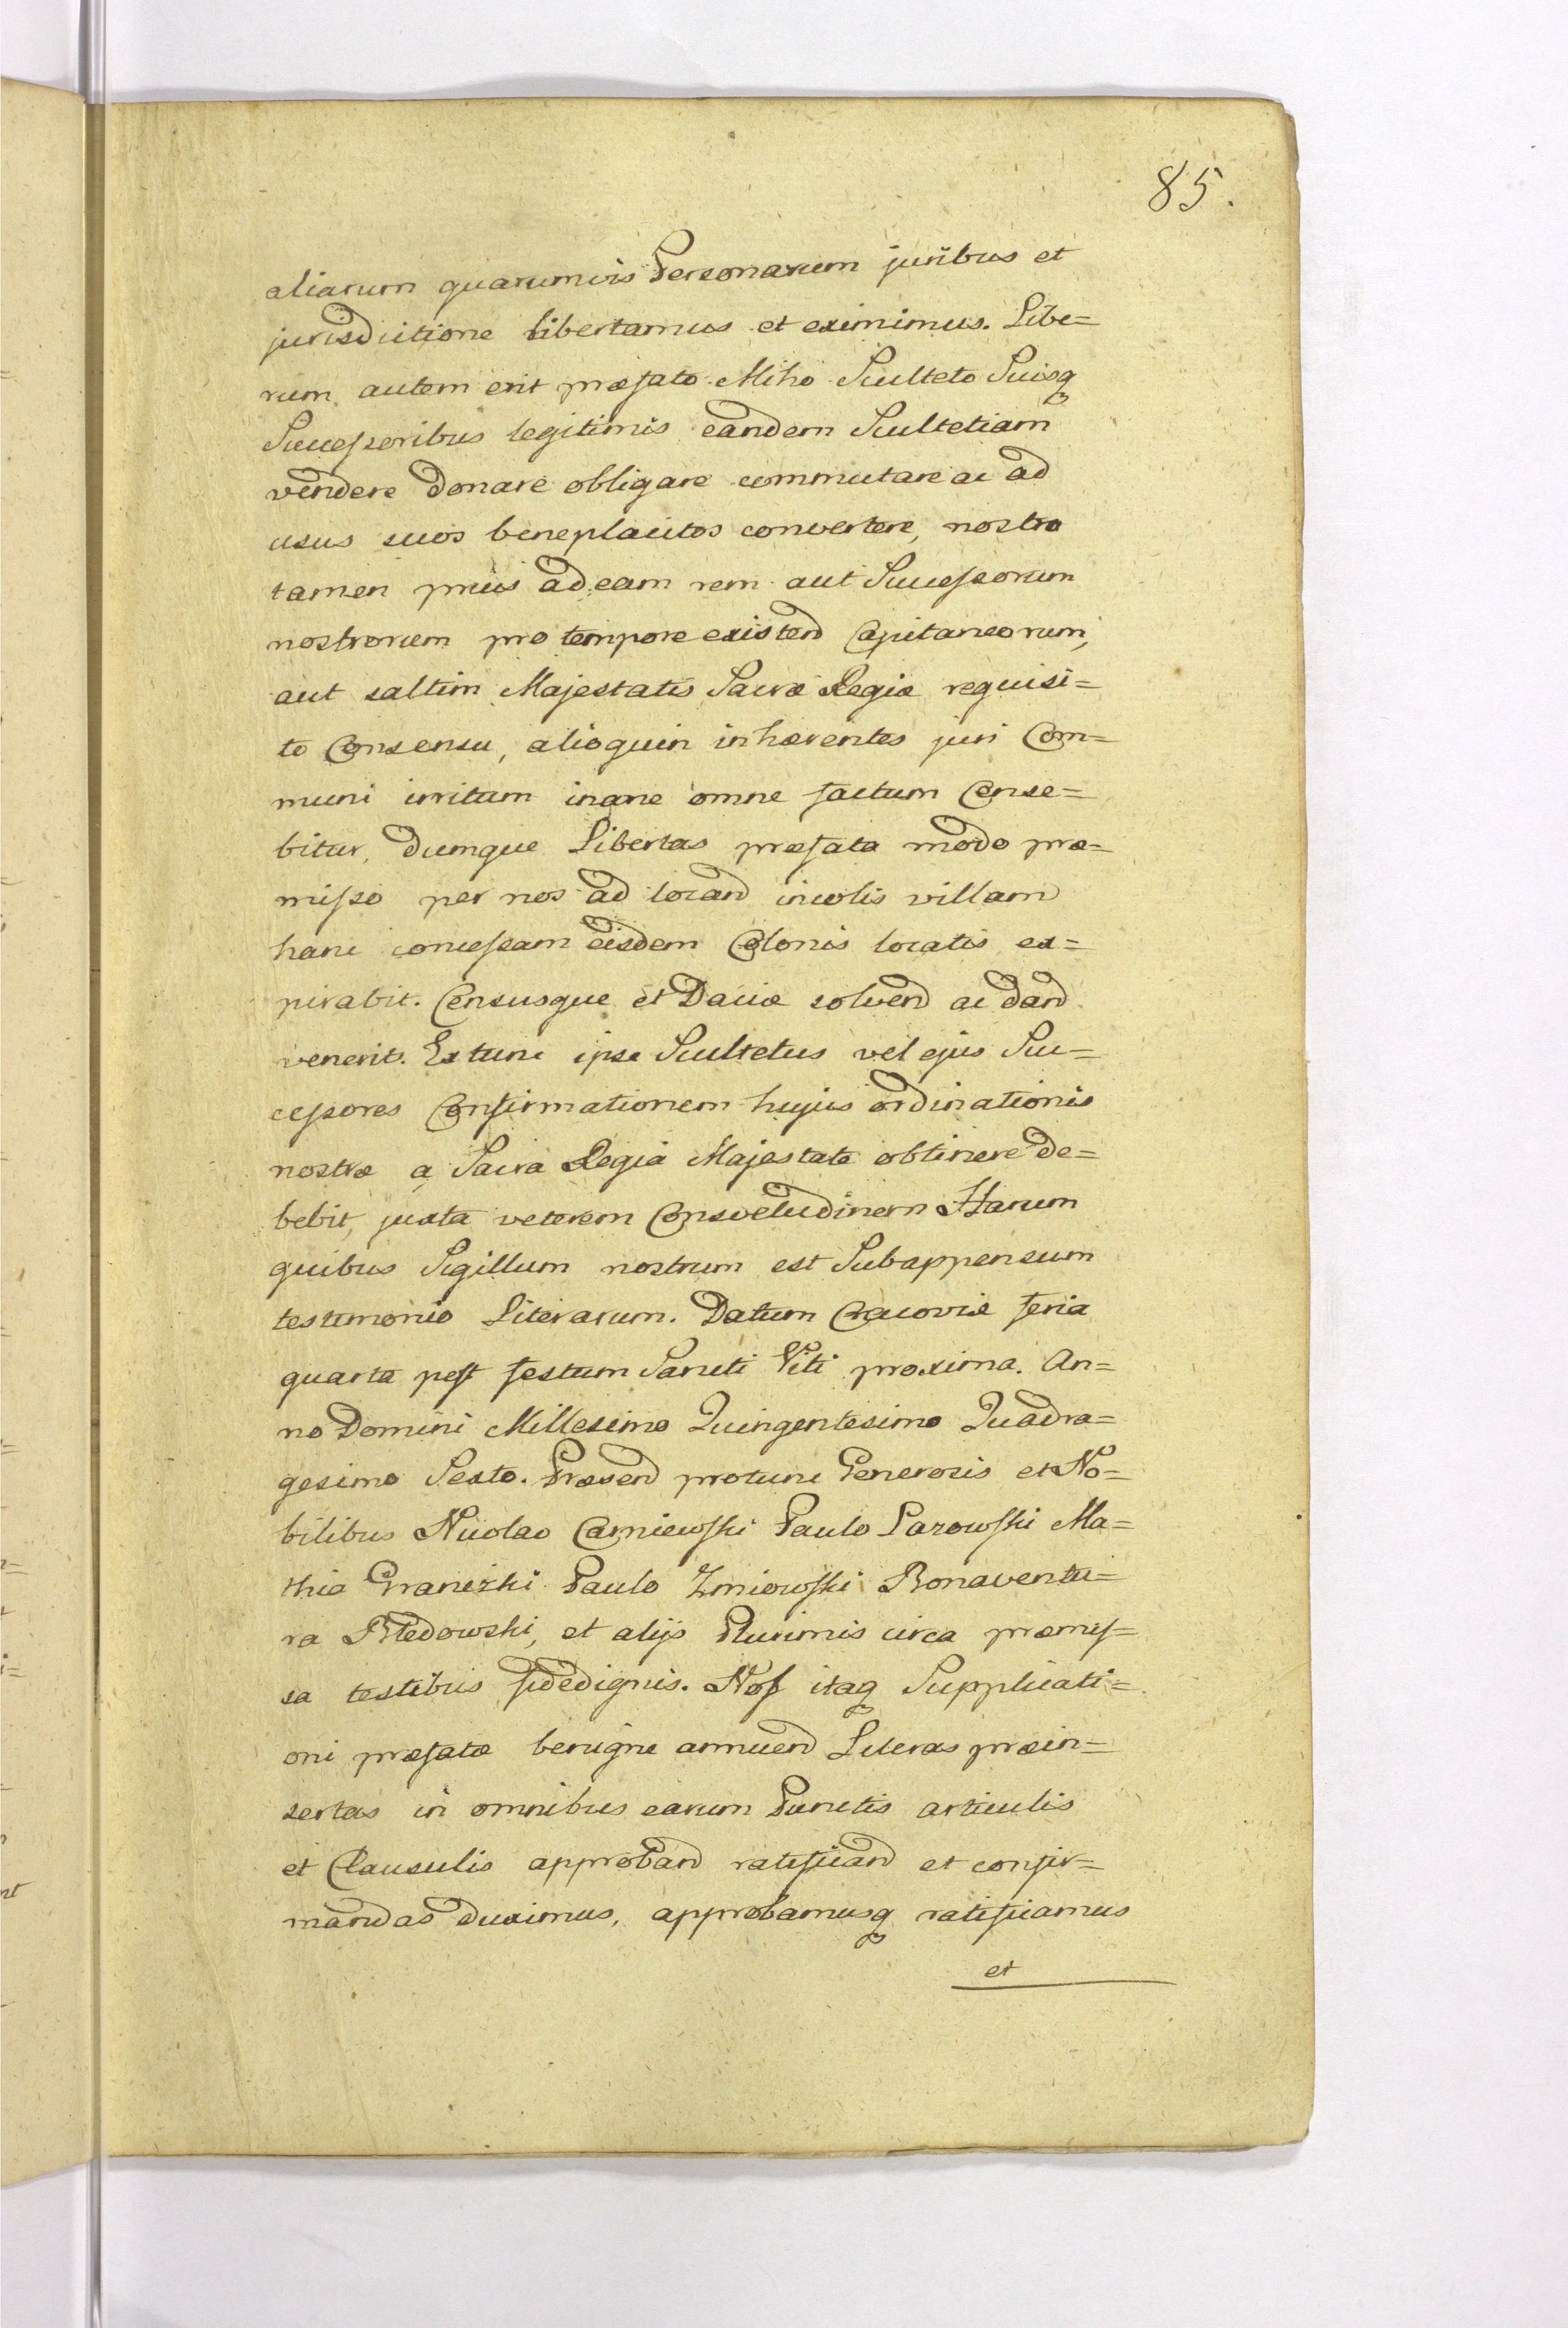 85.
aliarum quarumvis Personarum juribus et
jurisdictione libertamus et eximimus. Libe=
rum autem erit præfato Miho Sculteto Suisq
Succeſsoribus legitimis eandem Scultetiam
vendere donare obligare commutare ac ad
usus suos beneplacitos convertere, nostro
tamen prius ad eam rem aut Succeſsorum
nostrorum pro tempore existend Capitaneorum,
aut saltim Majestatis Sacræ Regiæ requisi=
to Consensu, alioquin inhærentes juri Com=
muni irritum inane omne factum Cense=
bitur, dumque Libertas præfata modo præ=
miſso per nos ad locand incolis villam
hanc conceſsam eisdem Colonis locatis ex=
pirabit. Censusque et Daciæ solvend ac dand
venerit. Ex tunc ipse Scultetus vel ejus Suc=
ceſsores Confirmationem hujus ordinationis
nostræ a Sacra Regia Majestate obtinere de=
bebit, juxta veterem Consvetudinem Harum
quibus Sigillum nostrum est Subappensum
testimonio Literarum. Datum Cracoviæ feria
quarta poſt festum Sancti Viti proxima. An=
no Domini Millesimo Quingentesimo Quadra=
gesimo Sexto. Præsend protunc Generosis et No=
bilibus Nicolao Camiewſki Paulo Parowſki Ma=
thia Graneżki Paulo Zmiowſki Bonaventu=
ra Błedowski, et alijs Plurimis circa præmiſ=
sa testibus fidedignis. Noſ itaq Supplicati=
oni præfatæ benigne annuend Literas præin=
sertas in omnibus earum Punctis articulis
et Clausulis approband ratificand et confir=
mandas duximus, approbamusq ratificamus
et